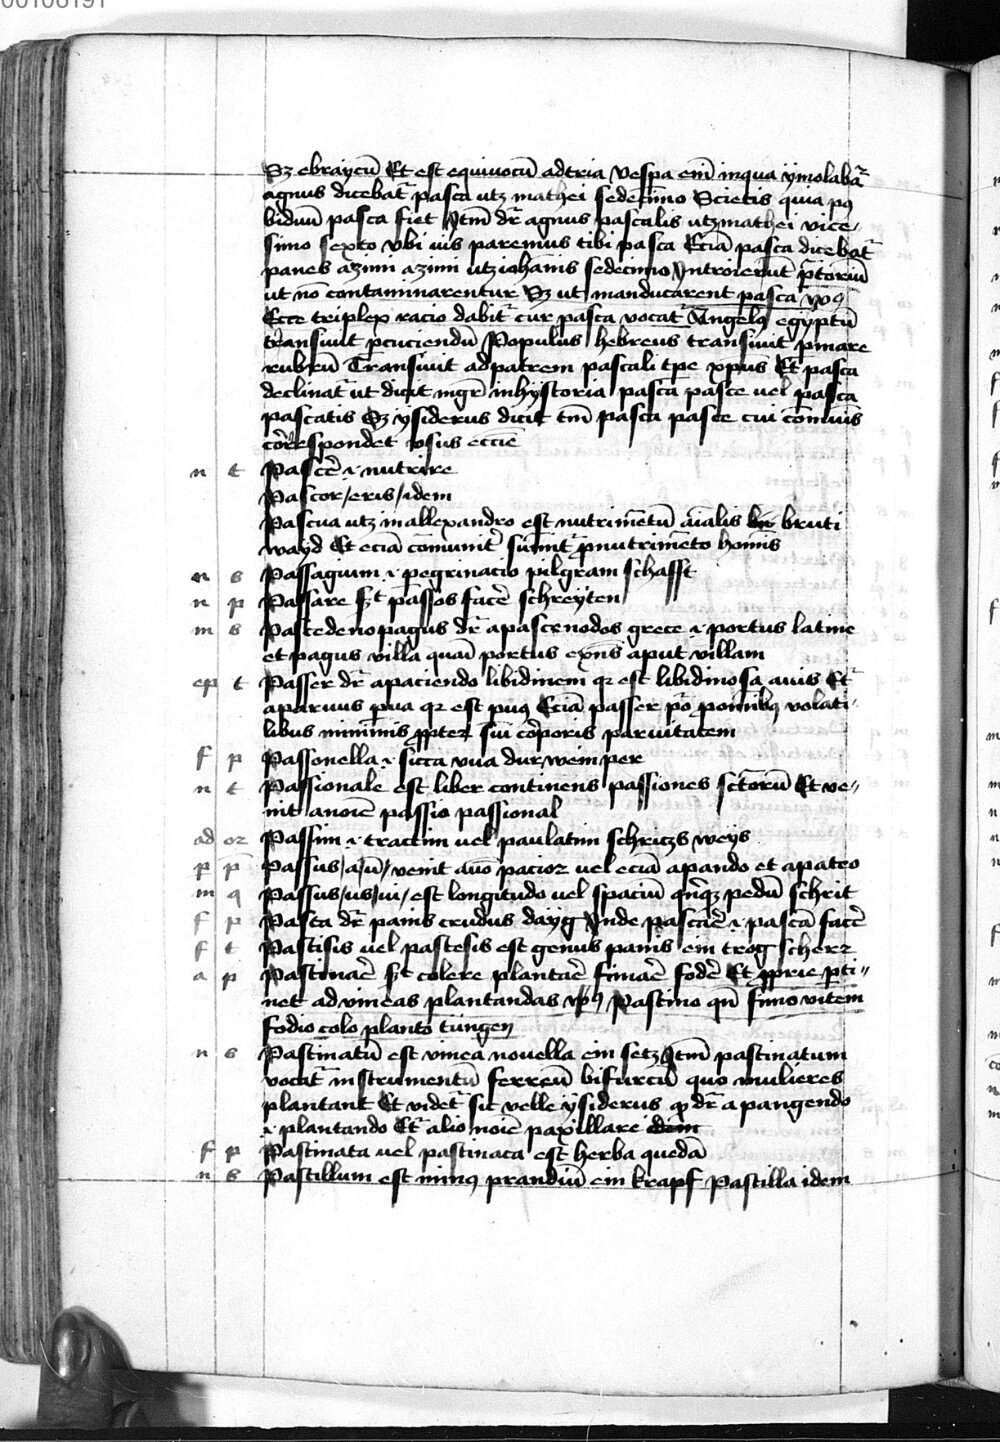 00106191
Sz ebraycū Et est equiuocū ad tria Vespa em̄ in qua ymolabat̄
agnus dicebat̄ pasca utz mathei sedecimo Scietis quia pꝰ
biduū pasca fiet Itm̄ dr̄ agnus pascalis utz mathei vice-
simo sexto vbi uis paremus tibi pasca Eciā pasca dicebat̄
panes azimi azimi utz iohānis sedecimo Introierūt p̄toriū
ut nō contaminarentur Sz ut manducarent pasca
Ecce triplex racio dabit̄ cur pasca vocat̄ Angelꝰ egyptū
transiuit pcuciendū Populus hebreus transiuit p mare
rubrū Transiuit ad patrem pascali tpe xpus Et pasca
declinat̄ ut dicit mgr̄ in hystoria pasca pasce uel pasca
pascatis Sz ysiderus dicit tm̄ pasca pasce cui comunis
correspondet vsus eccīe
n t Pascēr .i. nutrire
Pascor/eris/idem
Pascua utz in allexandro est nutrimētū aīalis bruti
wayd Et eciā comunit̄ sumit̄ p nutrimēto homīs
n s Passagium .i. pegrinacio pilgramschafft
n p Passare st passos facēr schreyten
m s Pascedenopagus dr̄ a pascenodos grece .i. portus latine
et pagus villa quasi portus exn̄s aput villam
ep t Passer dr̄ a paciendo libidinem qꝛ est libidinosa auis Et
a paruus pua qꝛ est puꝰ Eciā passer pō p omnibꝰ volati-
libus minimis ppter sui corporis paruitatem
f p Passonella .i. sicca vua durweinper
n t Passionale est liber continens passiones sctorū Et ve-
nit a noīe passio passional
ad oꝛ Passim .i. tractim uel paulatim schritzs weys
p p Passus/a/ū/ venit a uō pacioꝛ uel eciā a pando et a pateo
m q Passus/us/ui/ est longitudo uel spaciū qnqꝫ pedū schrit
f p Pasta dr̄ panis crudus dayg Inde pascāēr .i. pascā facēr
f t Pastisis uel pastesis est genus panis ein trog scherꝛ
a p Pastinaēr st colere plantaēr fimaēr fodēr Et pprie pti-
net ad vineas plantandas vsꝰ Pastino qn̄ fimo vitem
fodio colo planto tungen
n s Pastinatū est vinea nouella ein setz Itm̄ pastinatum
vocat̄ instrumentū ferreū bifurcū quo mulieres
plantant Et videt̄ sic velle ysiderus qꝫ dr̄ a pangendo
.i. plantando Et alio noīe paxillare idem
f p Pastinata uel pastinaca est herba quedā
n s Pastillum est minꝰ prandiū ein krapf Pastilla idem